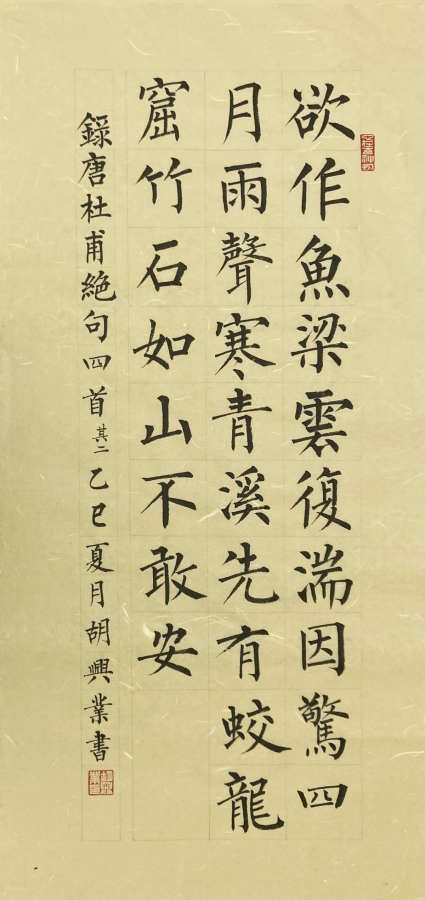 欲作魚梁雲復湍因驚四
月雨聲寒青溪先有蛟龍
窟竹石如山不敢安
錄唐杜甫絶句四首其二乙巳夏月胡興業書